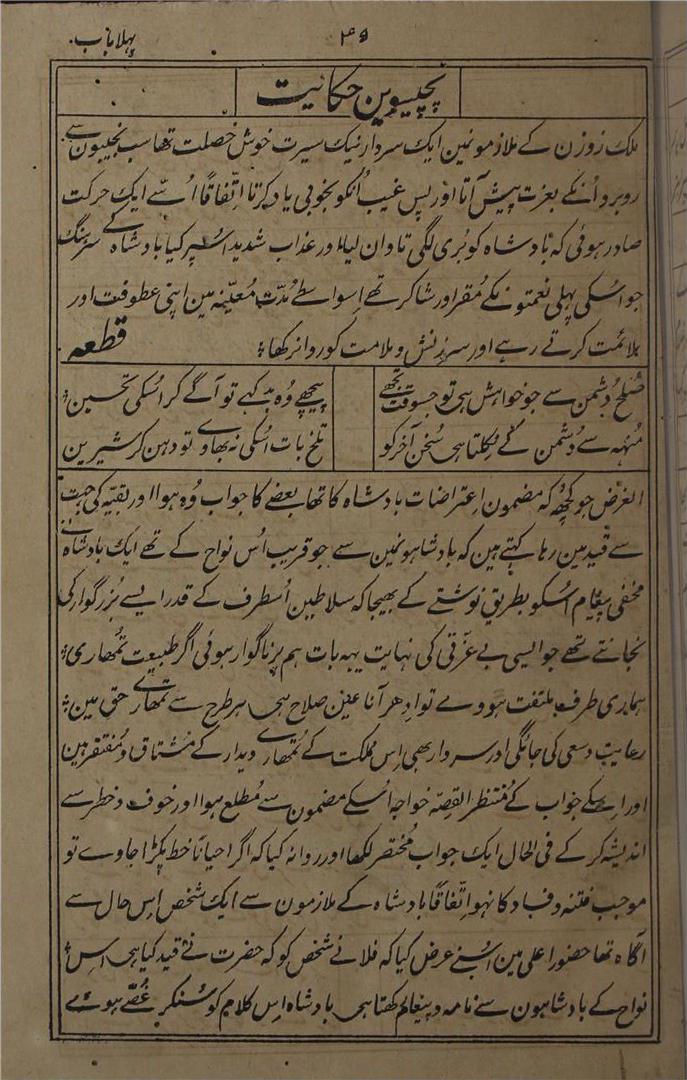 پہلا باب.
۴۹
پچیسوین حکایت
ملک زوزن کے ملازمونمین ایک سردار نیک سیرت خوش خصلت تھا سب نجیبون سے
روبرو اُنکے بعزت پیش آتا اور پس غیب اُنکو بخوبی یاد کرتا اتّفاقًا اُسّے ایک حرکت
صادر ہوئی کہ بادشاہ کو بُری لگی تاوان لیا اور عذاب شدید اسپر کیا بادشاہ کے سرہنگ
جو اسکی پہلی نعمتونکے مُقر اور شاکر تھے اِسواسطے مُدّت مُعیّنہ مین اپنی عطوفت اور
ملائمت کرتے رہے اور سرزنش و ملامت کو روا نرکھا؛ قطعہ
صُلح دُشمن سے جو خواہش ہی تو جسوقت تجھے
پیچھے وُہ بد کہے تو آگے کر اسکی تحسین؛
مُنہہ سے دُشمن کے نکلتا ہی سُخن آخر کو
تلخ بات اُسکی نہ بھاوے تو دہن کر شیرین
الغرض جو کچُھہ کہ مضمون اِعتراضات بادشاہ کا تھا بعضے کا جواب وُہ ہوا اور بقیّہ کی جہت
سے قید مین رہا کہتے ہین کہ بادشاہونمین سے جو قریب اُس نواح کے تھے ایک بادشاہ نے
مخفی پیغام اسکو بطریق نوشتے کے بھیجا کہ سلاطین اُسطرف کے قدر ایسے بُزرگوار کی
نجانتے تھے جو ایسی بے عزّتی کی نہایت یہہ بات ہم پر ناگوار ہوئی اگر طبیعت تُمھاری؛
ہماری طرف ملتفت ہووے تو اِدھر آنا عین صلاح ہی ہر طرح سے تمھارے حق مین؛
رعایت و سعی کی جائگی اور سردار بھی اِس مُملکت کے تُمھارے دیدار کے مُشتاق و مُفتقر ہین
اور اِسکے جواب کے مُنتظر القصّہ خواجہ اُسکے مضمون سے مُطلع ہوا اور خوف و خطر سے
اندیشہ کر کے فی الحال ایک جواب مُختصر لکھا اور روانہ کیا کہ اگر احیانًا خط پکڑا جاوے تو
موجب فتنہ و فساد کا نہو اتّفاقًا بادشاہ کے ملازمون سے ایک شخص اِس حال سے
آگاہ تھا حضور اعلی مین اُسنے عرض کیا کہ فلانے شخص کو کہ حضرت نے قید کیا ہی اس
نواح کے بادشاہون سے نامہ و پیغام رکھتا ہی بادشاہ اِس کلام کو سُنکر غُصّے ہوئے